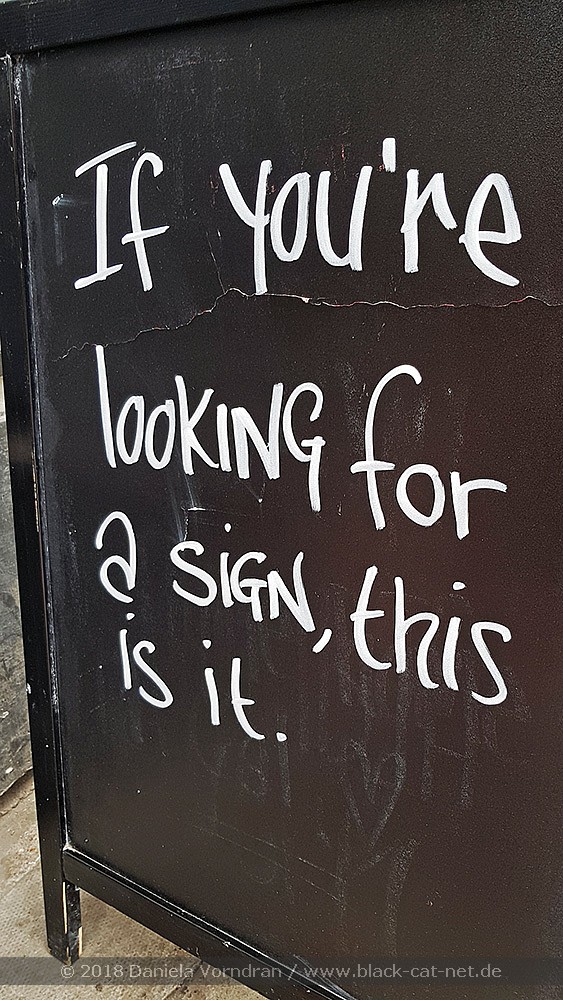 If you're
looKING for
a SiGN, this
is it.
© 2018 Daniela Vorndran / www.black-cat-net.de